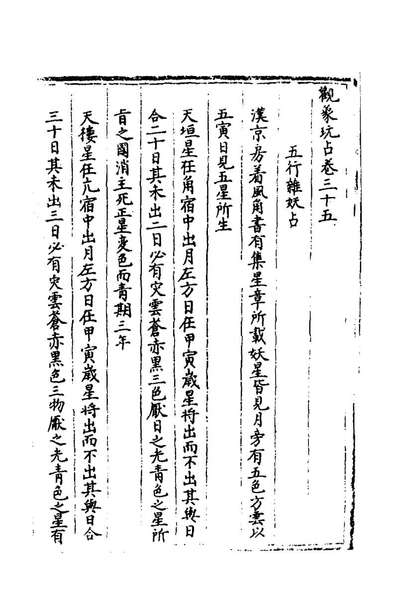 觀象玩占卷三十五
五行雜妖占
漢京房著風角書有集星章所載妖星皆見月旁有五色方雲以
五寅日見五星所生
天垣星在角宿中出月左方日在甲寅歲星将出而不出其與日
合二十日其未出二日必有灾雲蒼赤黑三色厭日之光青色之星所
肓之國消主死正星変色而青期三年
天樓星在亢宿中出月左方日在甲寅歲星将出而不出其與日合
三十日其未出三日必有灾雲蒼赤黑色三物厭之光青色之星有